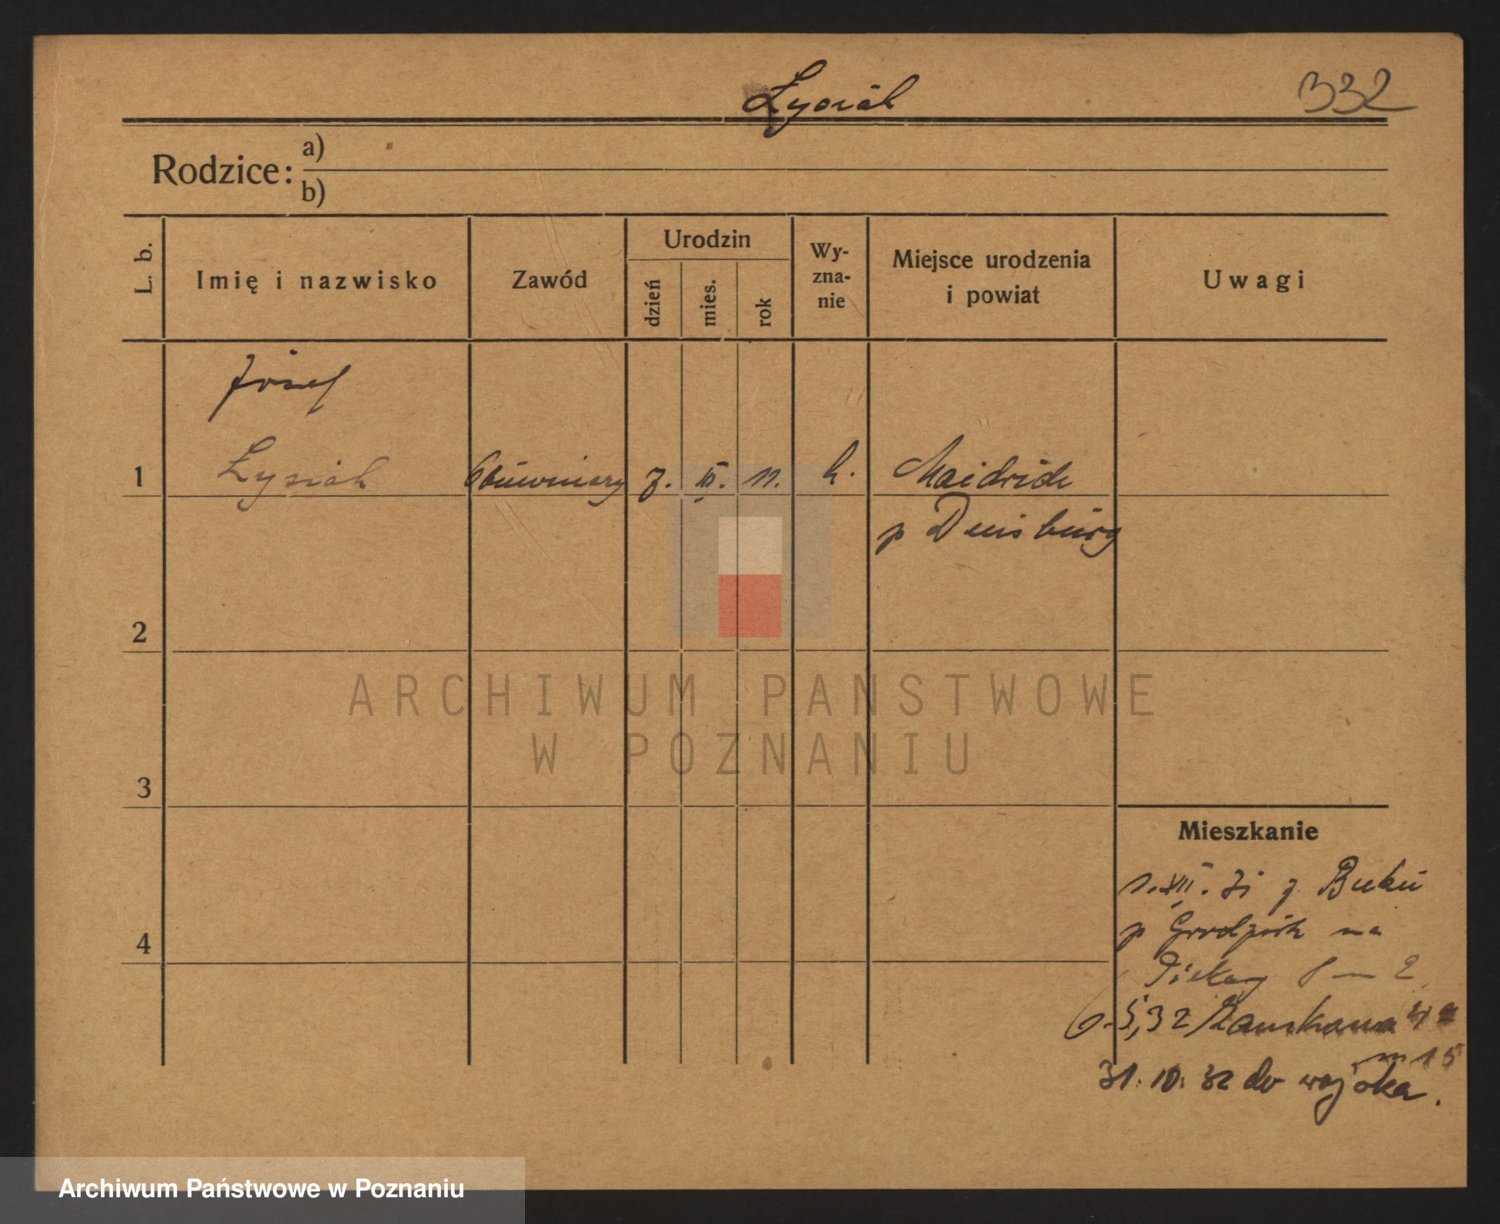 Łysiak 332
Rodzice: a)
b)
L. b.
Imię i nazwisko
Zawód
Urodzin
dzień
mies.
rok
Wy-
zna-
nie
Miejsce urodzenia
i powiat
Uwagi
Józef
1 Łysiak 7. III. 11. k.
p Duisburg
2
3
4
Mieszkanie
1. XII. 31 z Buku
p Grodzisk na
Piekary
6. 5, 32
m 15
31. 10. 32 do wojska.
ARCHIWUM PAŃSTWOWE
W POZNANIU
Archiwum Państwowe w Poznaniu